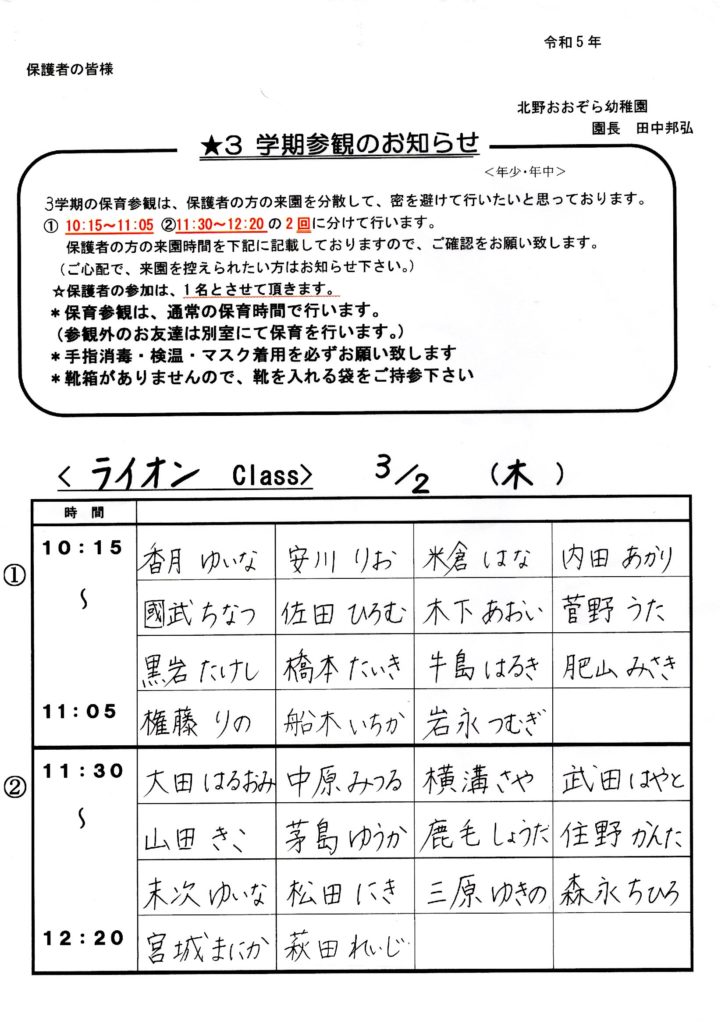 令和５年
保護者の皆様
北野おおぞら幼稚園
園長　田中邦弘
★３ 学期参観のお知らせ
＜年少・年中＞
3学期の保育参観は、保護者の方の来園を分散して、密を避けて行いたいと思っております。
① 10：15～11：05 ②11：30～12：20の２回に分けて行います。
保護者の方の来園時間を下記に記載しておりますので、ご確認をお願い致します。
（ご心配で、来園を控えられたい方はお知らせ下さい。）
☆保護者の参加は、１名とさせて頂きます。
＊保育参観は、通常の保育時間で行います。
（参観外のお友達は別室にて保育を行います。）
＊手指消毒・検温・マスク着用を必ずお願い致します
＊靴箱がありませんので、靴を入れる袋をご持参下さい
＜ ライオン Class＞ 3/2 （木）
時　間
① 10：15 香月 ゆいな 安川 りお 米倉 はな 内田 あかり
～ 國武 ちなつ 佐田 ひろむ 木下 あおい 菅野 うた
黒岩 たけし 橋本 たいき 牛島 はるき 肥山 みさき
11：05 権藤 りの 船木 いちか 岩永 つむぎ
② 11：30 大田 はるおみ 中原 みつる 横溝 さや 武田 はやと
～ 山田 きこ 茅島 ゆうか 鹿毛 しょうだ 住野 かんた
末次 ゆいな 松田 にき 三原 ゆきの 森永 ちひろ
12：20 宮城 まにか 萩田 れいじ